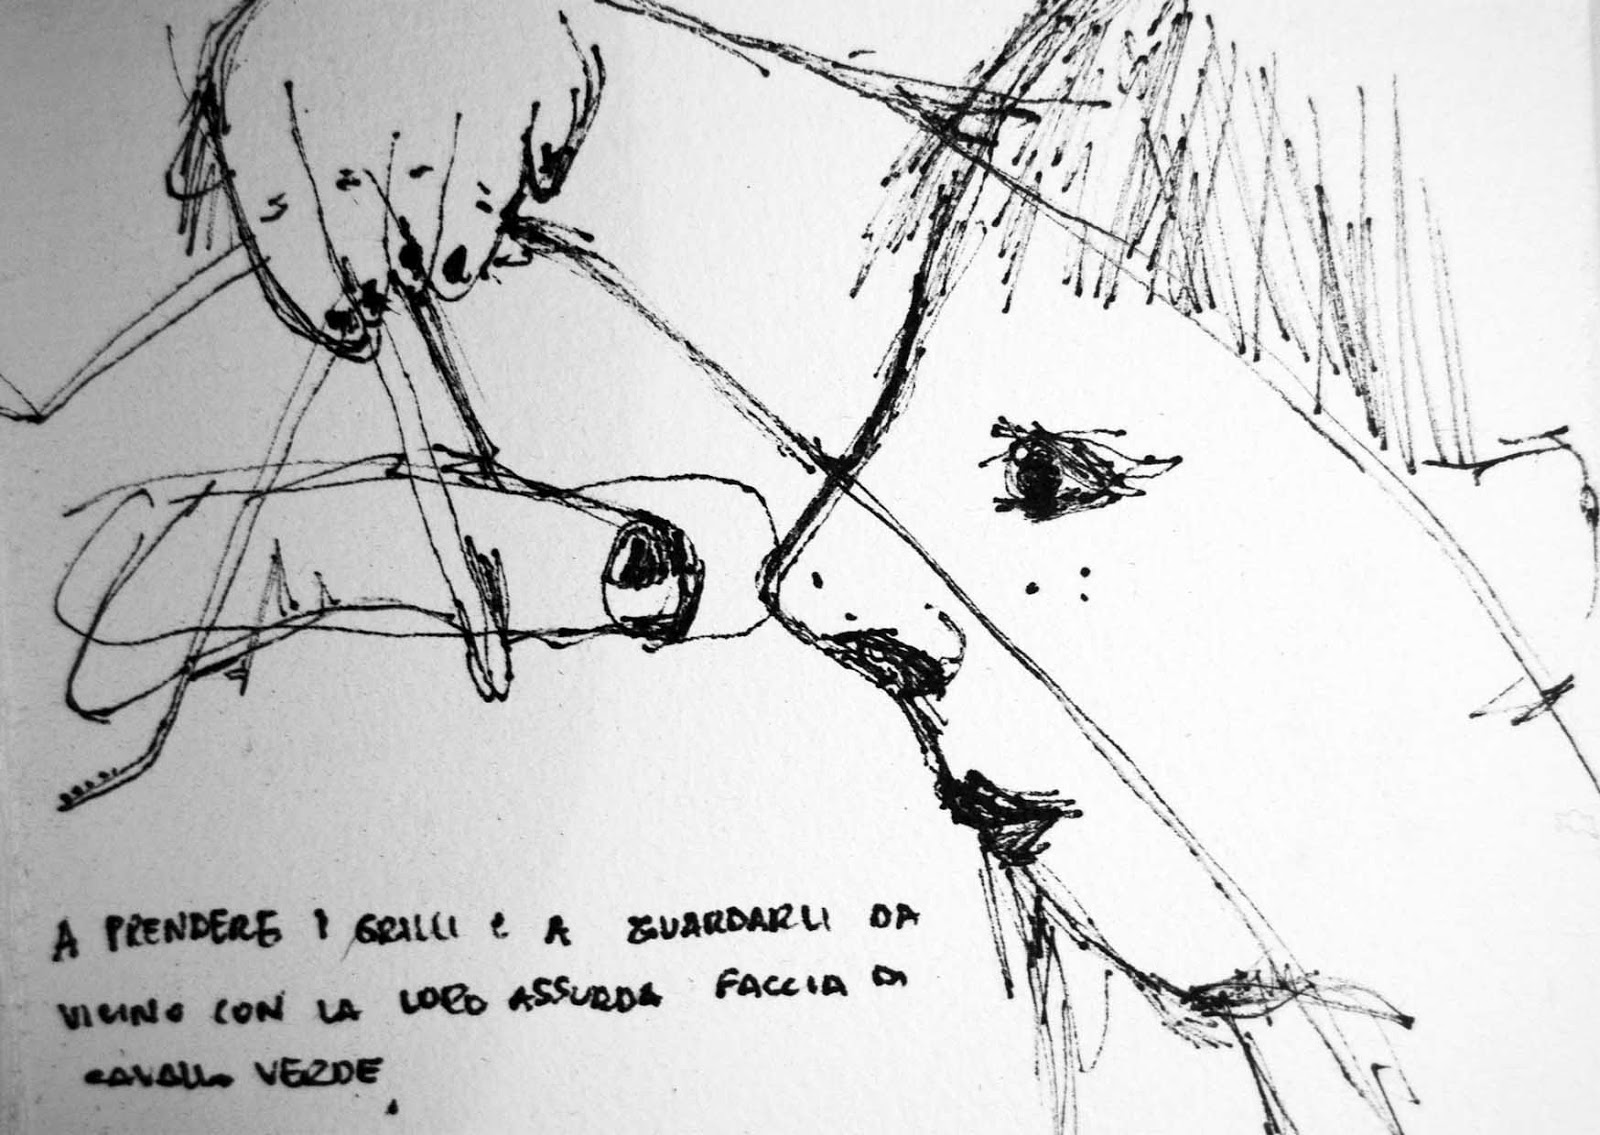 A PRENDERE I GRILLI E A GUARDARLI DA
VICINO CON LA LORO ASSURDA FACCIA DI
CAVALLO VERDE.